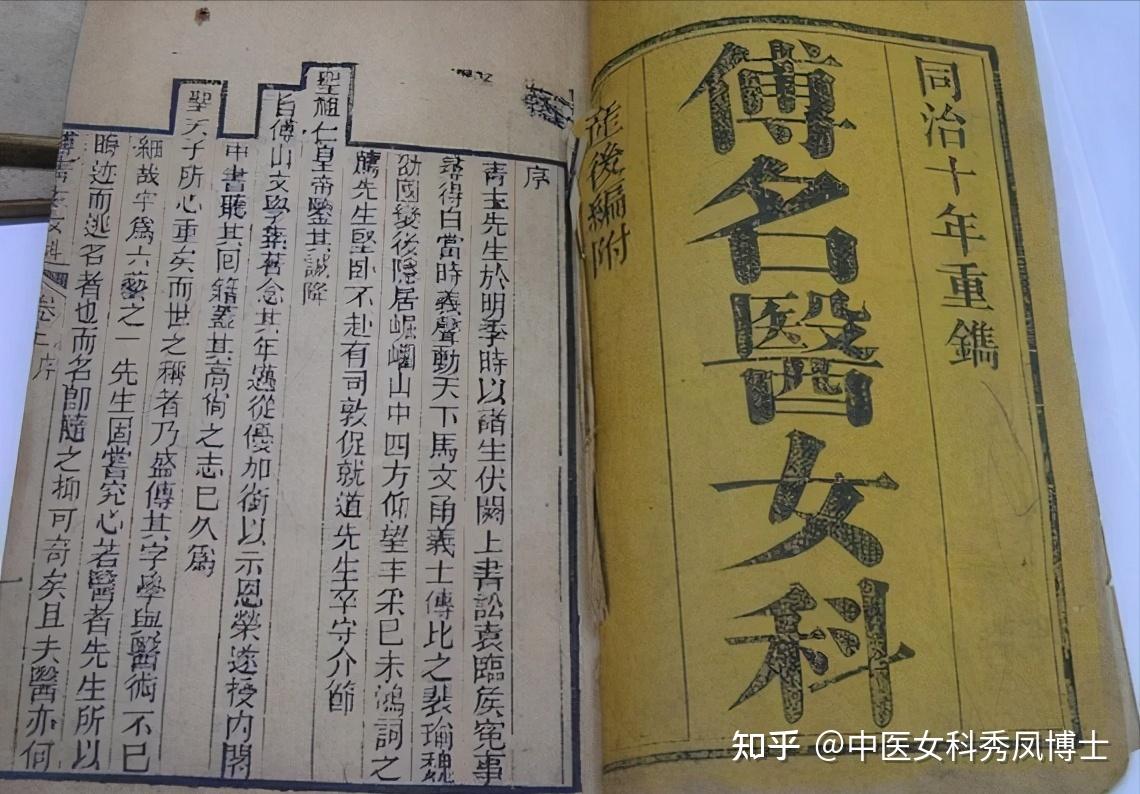 同治十年重鐫
傅名醫女科
產後編附
序
青主先生於明季時以諸生伏闕上書訟袁臨矦冤事
得白當時義聲動天下馬文甬義士傳比之裴瑜魏
劭國變後隱居崛𡺾山中四方仰望丰采已未鴻詞之
薦先生堅卧不赴有司敦促就道先生卒守介節
聖祖仁皇帝鑒其誠降
旨傅山文學素著念其年邁從優加銜以示恩榮遂授內閣
中書聽其回籍蓋其高尙之志已久爲
聖天子所心重矣而世之稱者乃盛傳其字學與醫術不已
細哉字爲六藝之一先生固嘗究心若醫者先生所以
晦迹而逃名者也而名卽隨之抑可奇矣且夫醫亦何
傅靑主女科 卷上 序
知乎 @中医女科秀凤博士